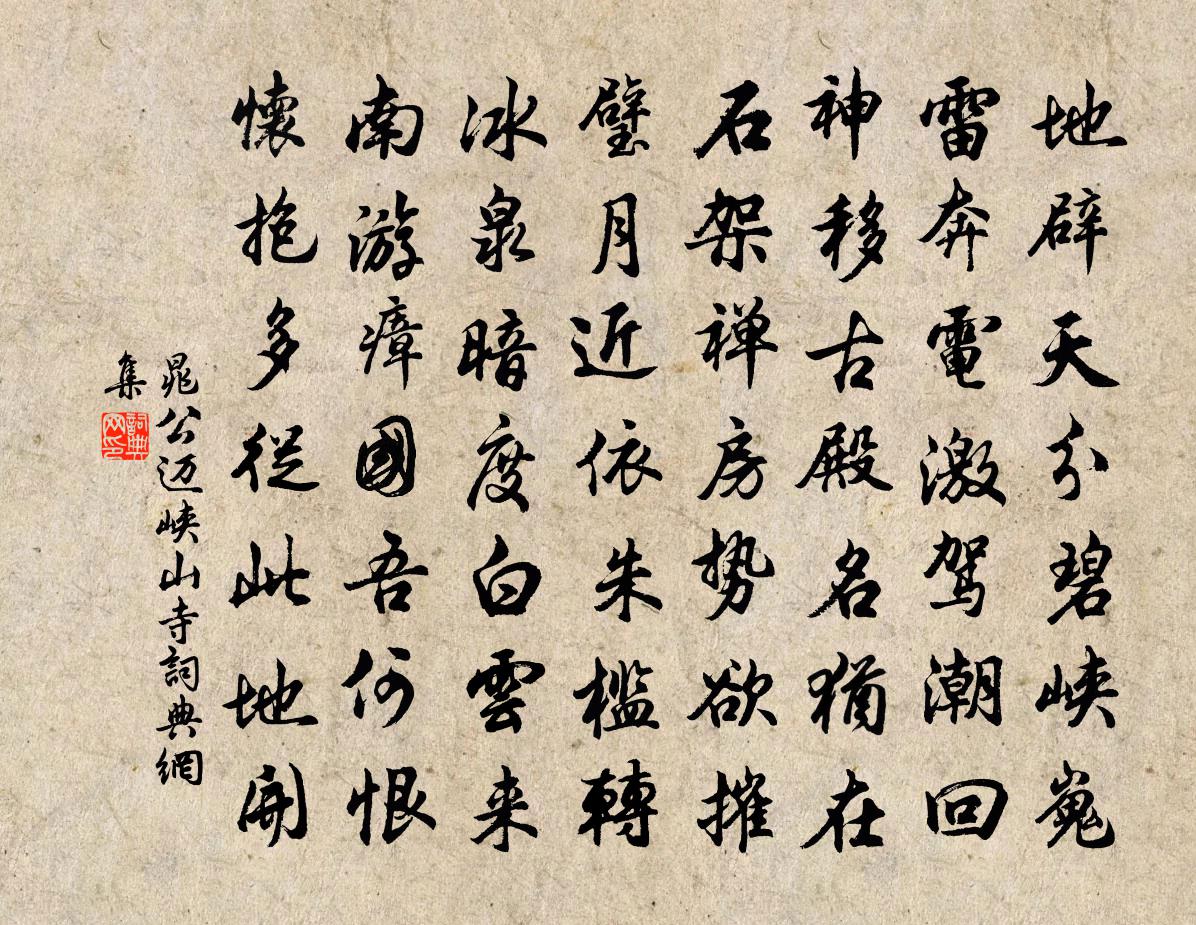 地辟天分碧峡嵬
雷奔電激駕潮回
神移古殿名猶在
石架禅房势欲摧
璧月近依朱檻轉
冰泉暗度白雲来
南游瘴國吾何恨
懷抱多從此地開
晁公迈峡山寺詞典網
集
詞典网印